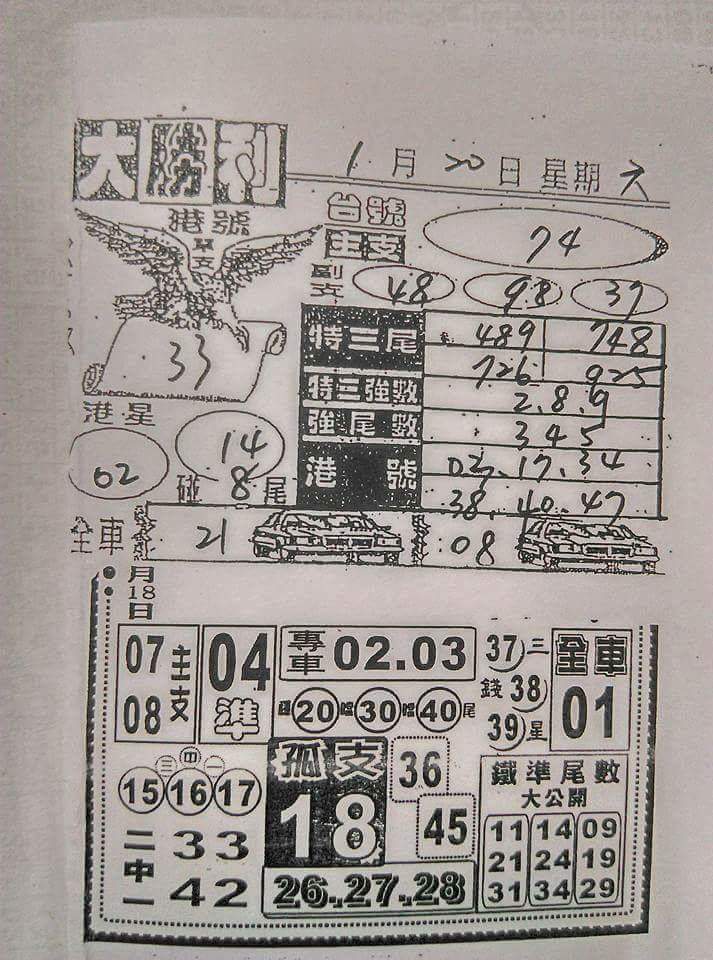 大勝利
1月20日星期六
港號
單支
33
台號
主支 74
副支 48 98 37
特三尾 489 748
726 925
特三強數 2.8.9
強尾數 345
港號 02.17.34
38.40.47
港星
02 14
碰 8尾
全車 21 08
月18日
07 08 主支
04 準
專車 02.03
20 30 40 尾
37 38 39
三錢星
全車 01
三中一
15 16 17
孤支 18
36
45
鐵準尾數
大公開
11 14 09
21 24 19
31 34 29
二中一
33
42
26.27.28